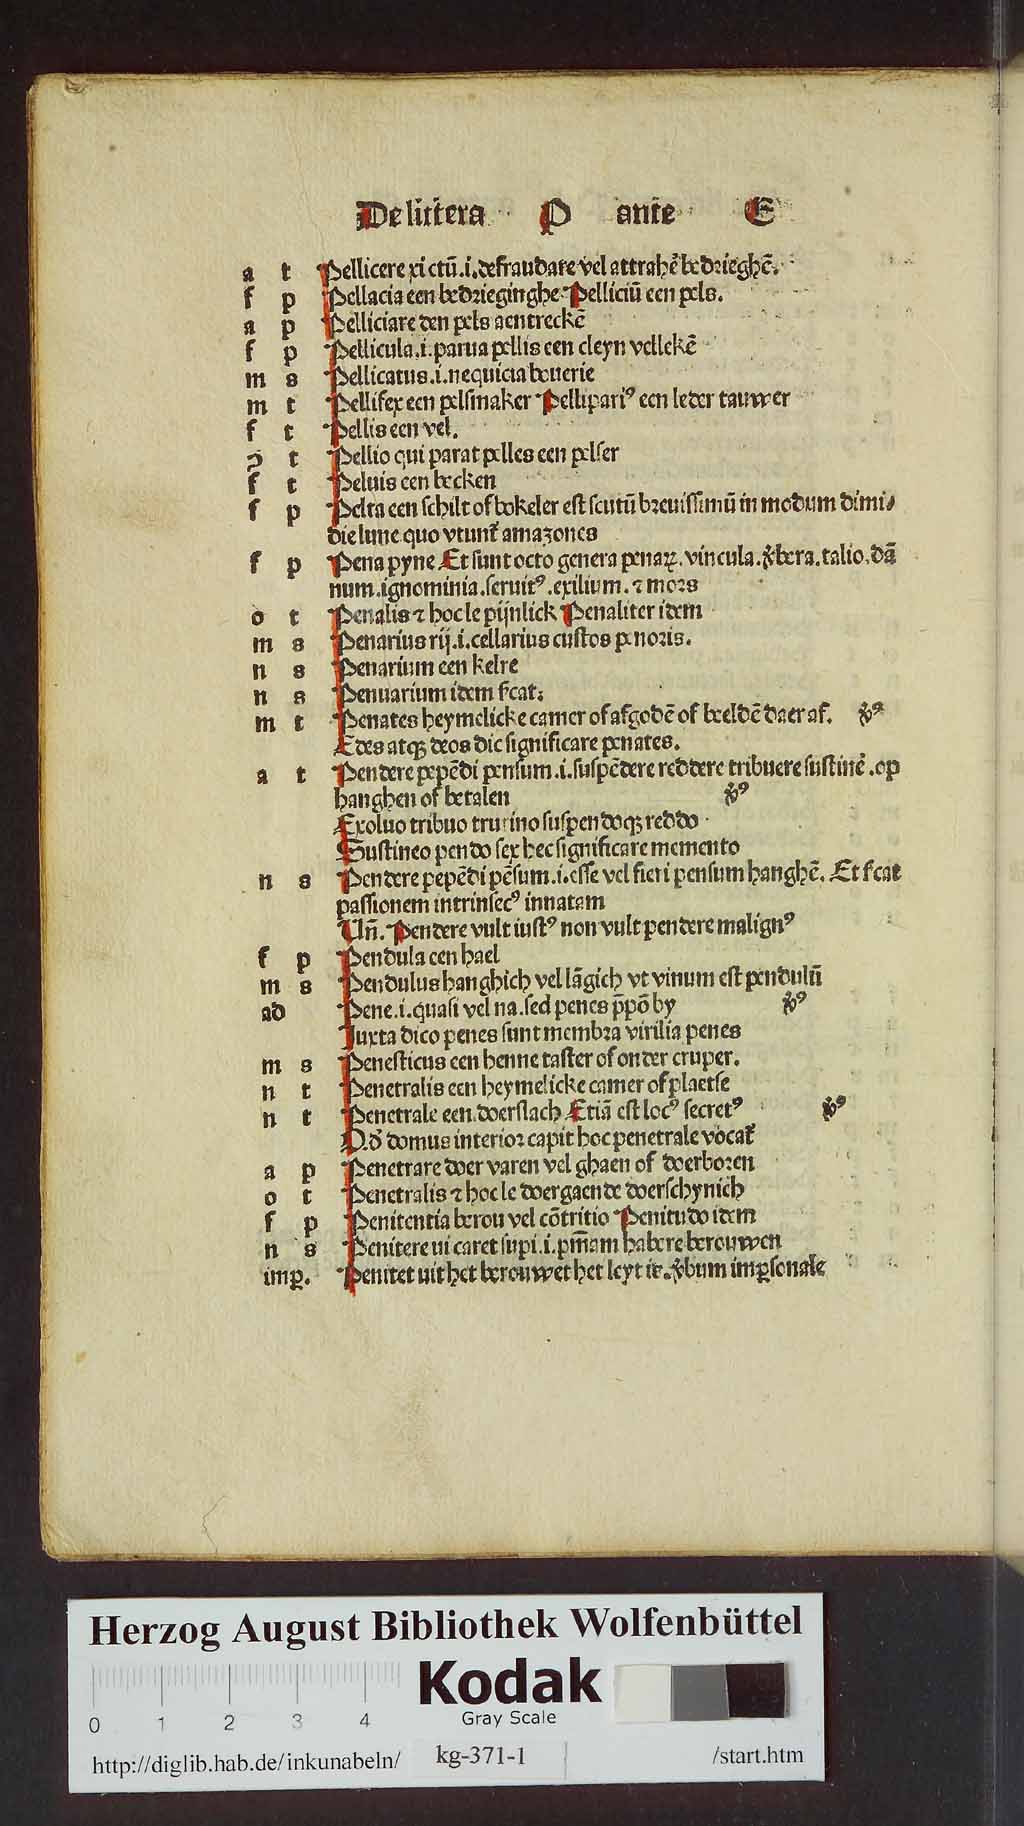 De littera P ante E
a t Pellicere xi ctū.i.defraudare vel attrahē bedrieghē.
f p Pellacia een bedrieginghe Pelliciū een pels.
a p Pelliciare den pels aentreckē
f p Pellicula.i.parua pellis een cleyn vellekē
m s Pellicatus.i.nequicia bouerie
m t Pellifex een pelsmaker Pellipariꝰ een leder tauwer
f t Pellis een vel.
ꝯ t Pellio qui parat pelles een pelser
f t Peluis een becken
f p Pelta een schilt of bokeler est scutū breuissimū in modum dimi⸗
die lune quo vtunt᷑ amazones
f p Pena pyne Et sunt octo genera penaꝝ. vincula.v̓bera.talio.dā
num.ignominia.seruitꝰ.exilium.⁊ mors
o t Penalis ⁊ hoc le pijnlick Penaliter idem
m s Penarius rij.i.cellarius custos penoris.
n s Penarium een kelre
n s Penuarium idem s̓cat:
m t Penates heymelicke camer of afgodē of beeldē daer af. v̓ꝰ
Edes atqꝫ deos dic significare penates.
a t Pendere pependi pensum.i.suspēdere reddere tribuere sustinē.op
hanghen of betalen v̓ꝰ
Exoluo tribuo trutino suspendoqꝫ reddo
Sustineo pendo sex hec significare memento
n s Pendere pepēdi pēsum.i.esse vel fieri pensum hanghē. Et s̓cat
passionem intrinsecꝰ innatam
Vn̄. Pendere vult iustꝰ non vult pendere malignꝰ
f p Pendula een hael
m s Pendulus hanghich vel lāgich vt vinum est pendulū
ad Pene.i.quasi vel na.sed penes p̄pō by v̓ꝰ
Iuxta dico penes sunt membra virilia penes
m s Penesticus een henne taster of onder cruper.
n t Penetralis een heymelicke camer of plaetse
n t Penetrale een doerslach Etiā est locꝰ secretꝰ v̓ꝰ
domus interior capit hoc penetrale vocat᷑
a p Penetrare doer varen vel ghaen of doerboren
o t Penetralis ⁊ hoc le doergaende doerschynich
f p Penitentia berou vel cōtritio Penitudo idem
n s Penitere ui caret supi.i.pn̄iam habere berouwen
imꝑ. Penitet uit het berouwet het leyt is.v̓bum imꝑsonale
Herzog August Bibliothek Wolfenbüttel
Kodak
Gray Scale
0 1 2 3 4
http://diglib.hab.de/inkunabeln/ kg-371-1 /start.htm